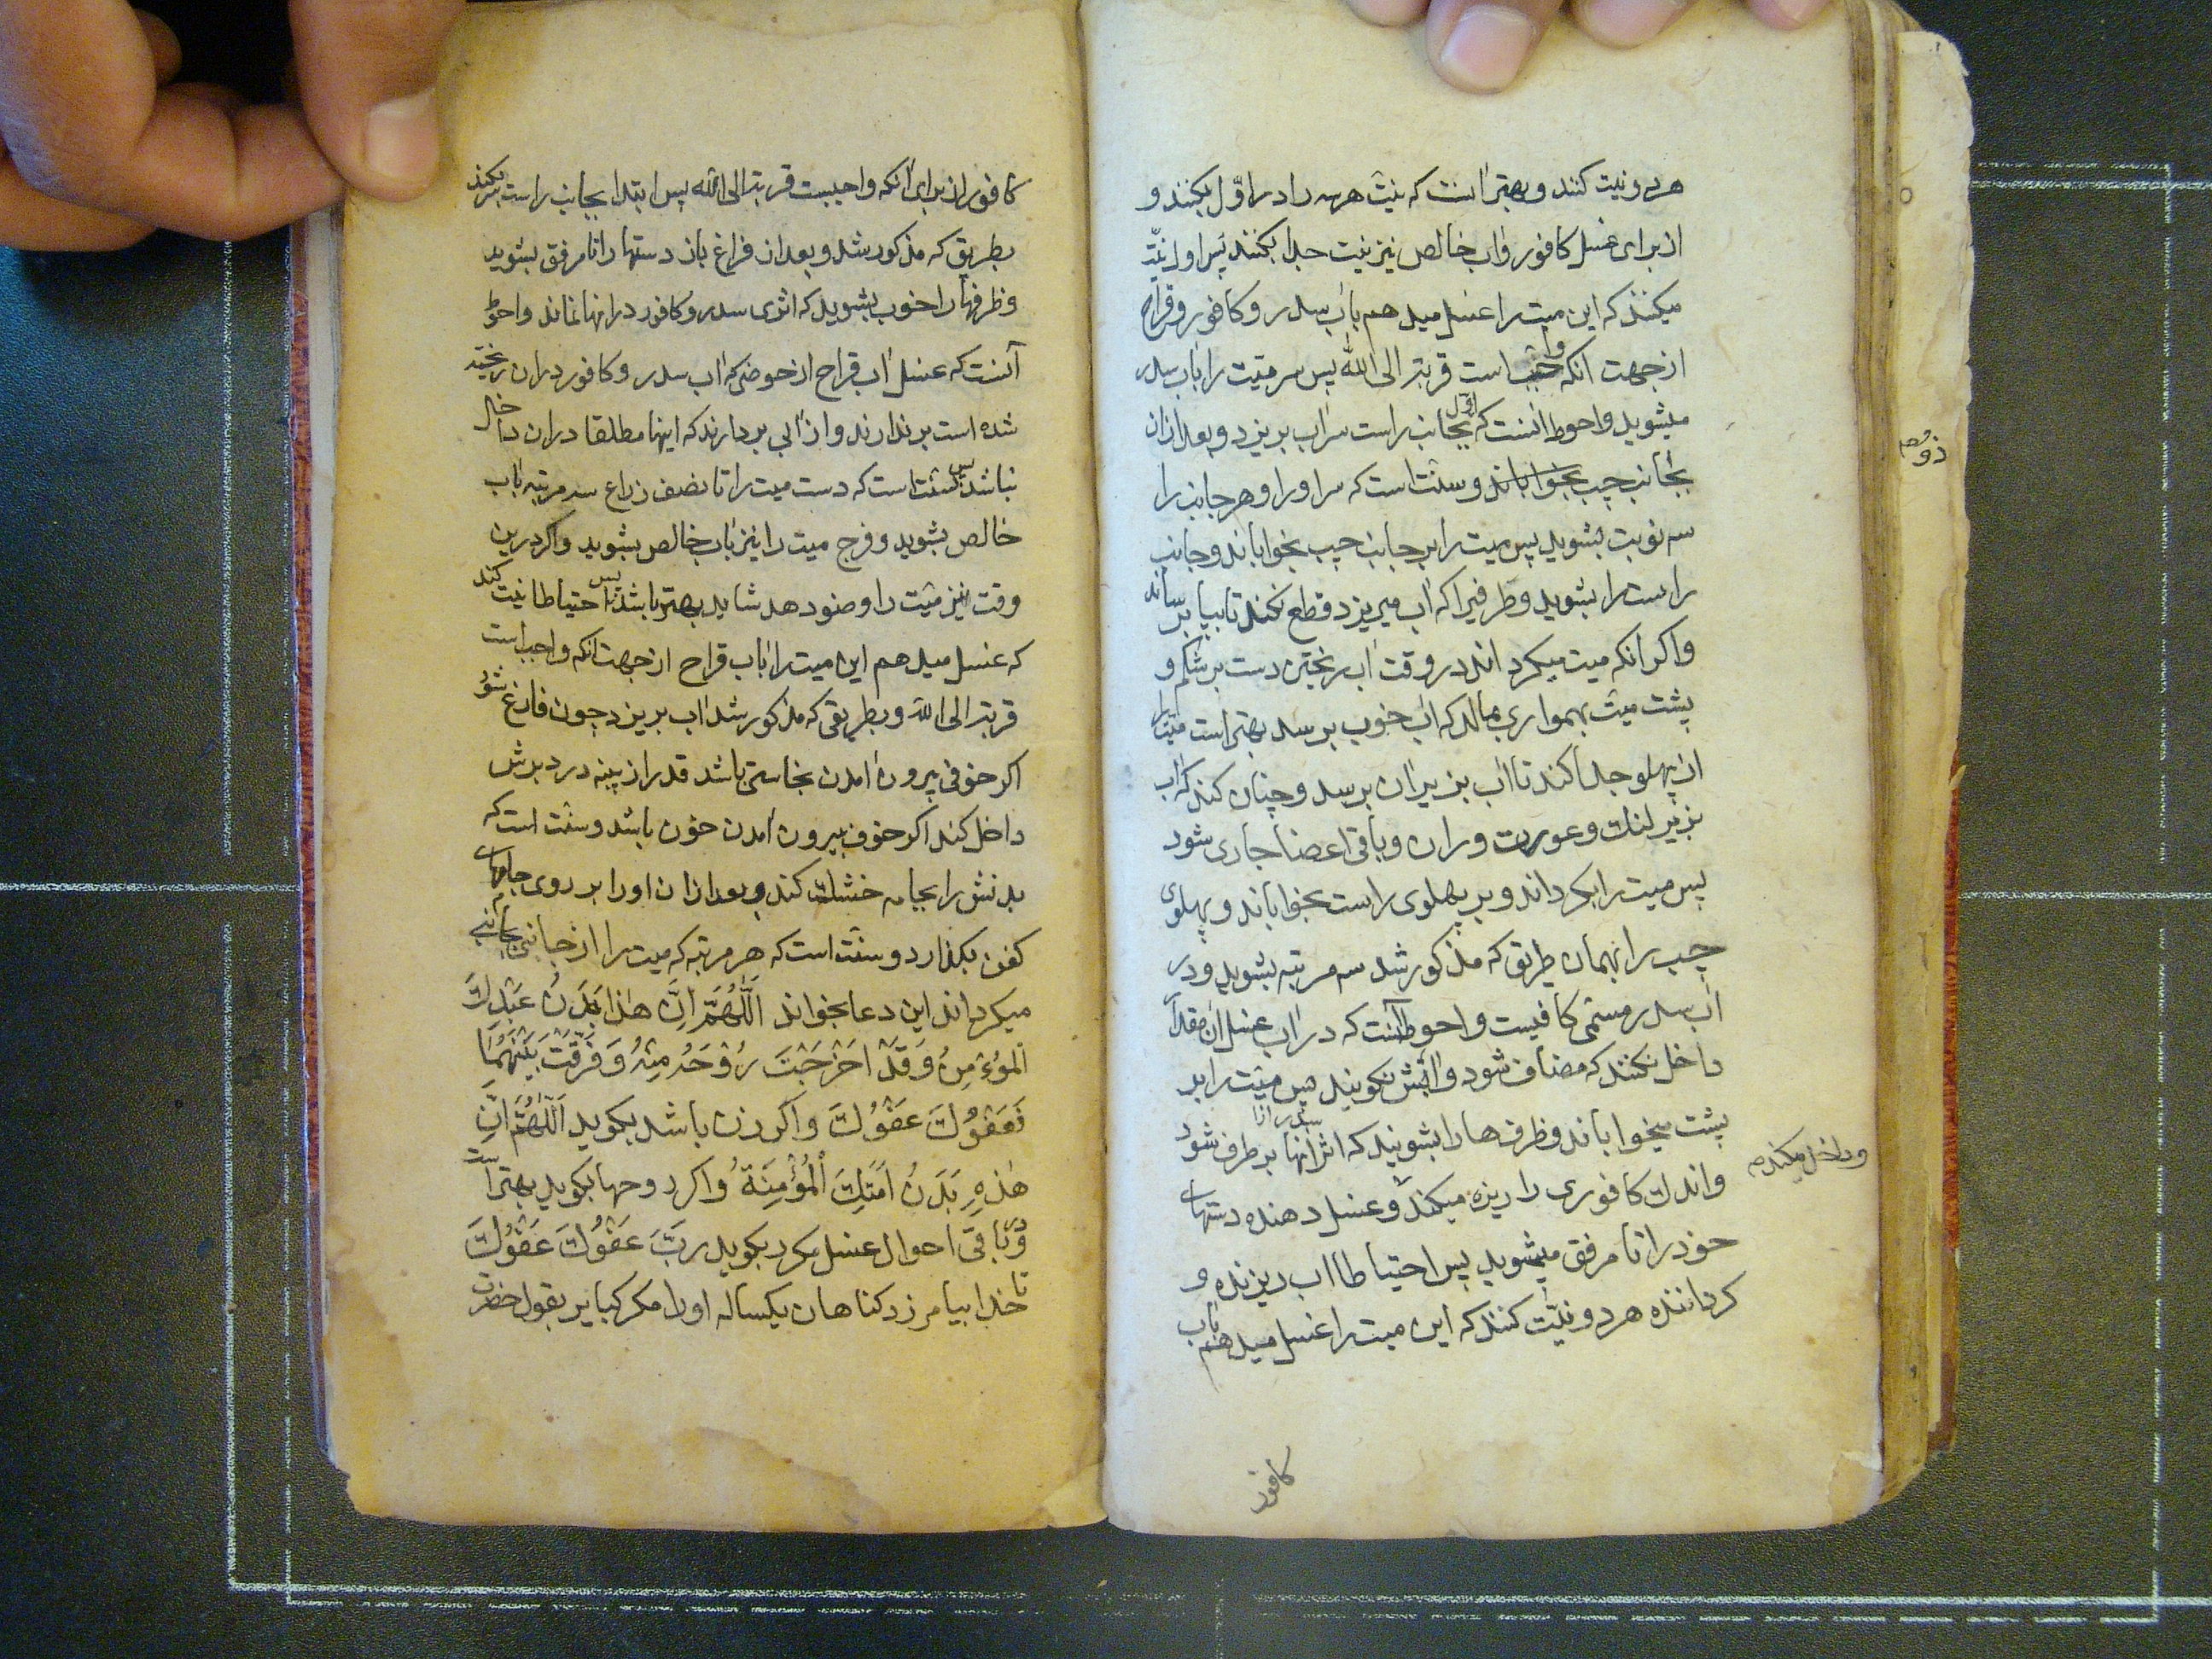 هر دو نیت کنند و بهتر انست که نیت هر سه را در اول بکنند و
از برای غسل کافور واب خالص نیز نیت جدا بکنند پس اول نیت
میکنند که این میت را غسل میدهم باب سدر و کافور و قراح
ازجهت انکه واجب است قربة الی الله پس سر میت را باب سدر
میشوید و احوط انست که اول بجانب راست سر اب بریزد و بعد ازان
بجانب چپ بخواباند و سنت است که سر او را و هر جانب را
سه نوبت بشوید پس میت را بر جانب چپ بخواباند و جانب
راست را بشوید و ظرفیرا که اب میریزد قطع نکند تا بپا برساند
واکر انکه میت میکرداند در وقت اب ریختن دست بر شکم و
پشت میت بهمواری بمالد که اب خوب برسد بهتر است میت را
از پهلو جدا کند تا اب بزیر ان برسد و چنان کند که اب
بزیر لنک و عورت و ران و باقی اعضا جاری شود
پس میت را بکرداند و بر پهلوی راست بخواباند و پهلوی
چپ را بهمان طریق که مذکور شد سه مرتبه بشوید و در
اب سدر مسمی کافیست و احوط آنست که در اب غسل ان مقدار
داخل نکنند که مضاف شود و ابش نکویند پس میت را بر
پشت میخواباند و ظرف ها را بشویند که اثر سدر ازانها بر طرف شود
واندک کافوری را ریزه میکند و غسل دهنده دستهای
وداخل میکند صح
خود را تا مرفق میشوید پس احتیاطا اب ریزنده و
کرداننده هر دو نیت کنند که این میت را غسل میدهم باب
کافور
کافور از برای انکه واجبست قربة الی الله پس ابتدا بجانب راست سر بکند
بطریق که مذکور شد و بعد از فراغ باز دستها را تا مرفق بشوید
وظرفها را خوب بشوید که اثری سدر و کافور درانها نماند و احوط
آنست که غسل اب قراح از حوضی که اب سدر و کافور دران ریخته
شده است برندارند و از ابی بردارند که اینها مطلقا دران داخل
نباشد پس سنت است که دست میت را تا نصف ذراع سه مرتبه باب
خالص بشوید و فرج میت را نیز باب خالص بشوید و اکر درین
وقت نیز میت را وضو دهد شاید بهتر باشد پس احتیاطا نیت کند
که غسل میدهم این میت را باب قراح ازجهت انکه واجب است
قربة الی الله و بطریقی که مذکور شد اب بریزد چون فارغ شود
اکر خوفی بیرون امدن نجاستی باشد قدر از پنبه در دبرش
داخل کند اکر خوف بیرون امدن خون باشد و سنت است که
بدنش را بجامه خشک کند و بعد ازان او را بر روی جامهای
کفن بکذارد و سنت است که هر مرتبه که میت را از جانبی بجانبی
میکرداند این دعا بخواند اَللّٰهُمَّ اِنَّ هٰذا بَدَنُ عَبْدِكَ
اَلْمُؤْمِنُ وَقَدْ اَخْرَجْتَ رُوْحَهُ مِنْهُ وَ فَرَّقْتَ بَيْنَهُمٰا
فَعَفْوُكَ عَفْوُكَ واکر زن باشد بکوید اَللّٰهُمَّ اِنَّ
هٰذِهِ بَدَنُ اَمَتِكَ الْمُؤْمِنَةُ و اکر دوجها بکوید بهتر است
و در باقی احوال غسل مکرر بکوید رَبِّ عَفْوُكَ عَفْوُكَ
تا خدا بیامرزد کناهان یکساله او را مکر کبایر بقول حضرت